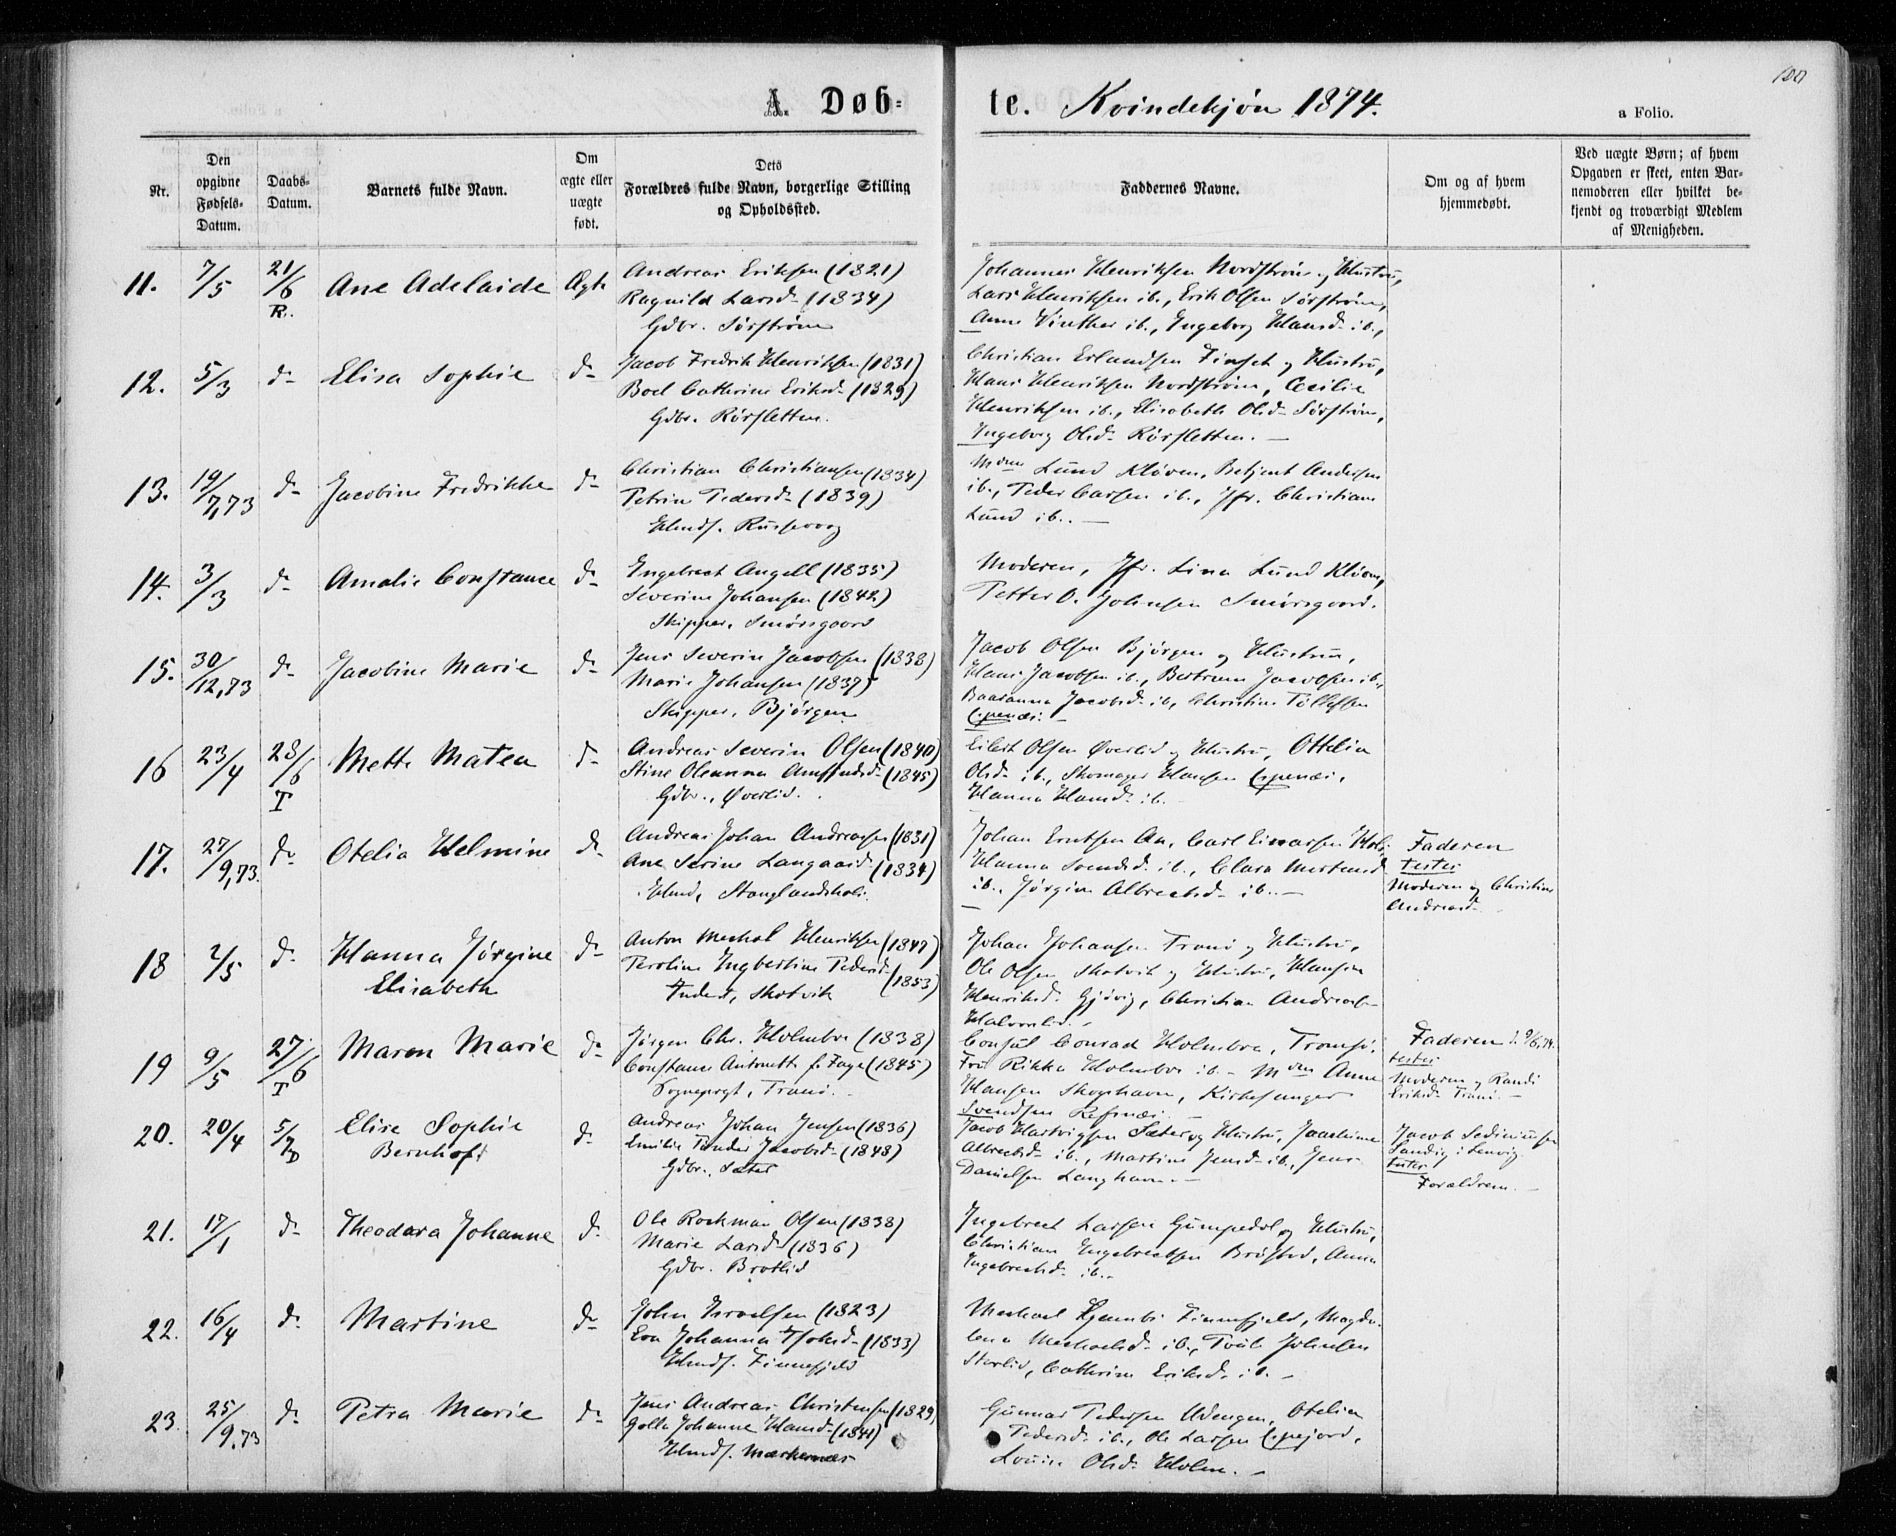 100
A. Døb-
te. Kvindekjøn 1874.
a Folio.
Nr.
Den
opgivne
Fødsels-
Datum.
Daabs-
Datum.
Barnets fulde Navn.
Om
ægte eller
uægte
født.
Dets
Forældres fulde Navn, borgerlige Stilling
og Opholdssted.
Faddernes Navne.
Om og af hvem
hjemmedøbt.
Ved uægte Børn; af hvem
Opgaven er skeet, enten Bar-
nemoderen eller hvilket be-
kjendt og troværdigt Medlem
af Menigheden.
11. 7/5 21/6 R. Ane Adelaide Ægte
Andreas Eriksen (1821)
Ragnild Larsd. (1834)
Gdbr. Sørstrøm
Johannes Henriksen Nordstrøm og Hustru,
Lars Henriksen ib., Erik Olsen Sørstrøm,
Anne Vinther ib., Ingeborg Hansd. ib.,
12. 5/3 do Elisa Sophie do
Jacob Fredrik Henriksen (1831)
Boel Cathrine Eriksd. (1829)
Gdbr. Rørsletten.
Christian Erlandsen Finset og Hustru,
Hans Henriksen Nordstrøm, Cecilie
Henriksen ib., Elisabeth Olsd. Sørstrøm,
Ingeborg Olsd. Rørsletten. —
13. 19/7,73 do Jacobine Fredrikke do
Christian Christiansen (1834)
Petrine Pedersd. (1839)
Hmd. Russevog
Mdm Lund Kløven, Betjent Andersen
ib., Peder Carsen ib., Jfr. Christiane
Lund ib. —
14. 3/3 do Amalie Constance do
Engebrect Angell (1835)
Severine Johansen (1842)
Skipper, Smørsgaard
Moderen, Jfr. Lina Lund Kløven,
Petter O. Johnsen Smørsgaard.
15. 30/12,73 do Jacobine Marie do
Jens Severin Jacobsen (1838)
Marie Johansen (1837)
Skipper, Bjørgen
Jacob Olsen Bjørgen og Hustru,
Hans Jacobsen ib., Bertram Jacobsen ib.,
Jacobsd. ib., Christine Tollefsen
16 23/4 28/6 T Mette Matea do
Andreas Severin Olsen (1840)
Stine Oleanna Amundsd. (1845)
Gdbr., Øverlid.
Eilert Olsen Øverlid og Hustru, Ottelia
Olsd. ib., Skomager Hansen
Hanna Hansd. ib.
17. 27/9,73. do Otelia Helmine do
Andreas Johan Andreasen (1831)
Ane Serine Langaard (1834)
Hmd, Stanglandshols.
Johan Erntsen Aa, Carl Einarsen
Hanna Svendsd. ib., Clara
ib., Jørgine Albrectsd. ib. —
Faderen
testes
Moderen og Christine
Andreasd.
18 2/5 do Hanna Jørgine
Elisabeth do
Anton Mechal Henriksen
Peroline Ingbertine Pedersd. (1853)
Inderst, Skotvik
Johan Johansen Tranø og Hustru,
Ole Olsen Skotvik og Hustru, Hansine
Henriksd. Gjøvig, Christian Andreas
19 9/5 27/6 T Maren Marie do
Jørgen Chr. Holmboe (1838)
Constance Antonette f. Fage (1845)
Sognepregt, Tranø.
Consul Conrad Holmboe, Tromsø,
Fru Rikka Holmboe ib. — Mdm Anne
Hansen Skogshavn, Kirkesanger
Svendsen Refsnæs. —
Faderen d. 9/6,74.
testes
Moderen og Randi
Eriksd. Tranø. —
20. 20/4 5/7 D Elise Sophie
Bernhoft do
Andreas Johan Jensen (1836)
Emilie Jacobsd. (1848)
Gdbr. Sæter
Jacob Hartvigsen Sæter og Hustru, Joachime
Albrectsd. ib., Martine Jensd. ib., Jens
Danielsen Langhavn. —
Jacob
Sandig i Lenvig
testes
Forældrene. —
21. 17/1 do Theodora Johanne do
Ole Rockman Olsen (1838)
Marie Larsd. (1836)
Gdbr. Brotlid
Ingebrect Larsen Gumpedal og Hustru,
Christian Engebrectsen Brøsted, Anna
Ingebrectsd. ib. —
22. 16/4 do Martine do
John Israelsen (1823)
Eva Johanna (1833)
Hmd. Finnefjeld
Mechael Finnefjeld, Magda-
lena Mechaelsd. ib., Poul Johnsen
Storlid, Cathrine Eriksd. ib. —
23. 25/9,73 do Petra Marie do
Jens Andreas Christensen (1829)
Johanne Hansd. (1841)
Hmd. Markenæs
Gunnar Pedersen Udengen, Otelia
Pedersd. ib., Ole Larsen
Lovise Olsd. Holm. —